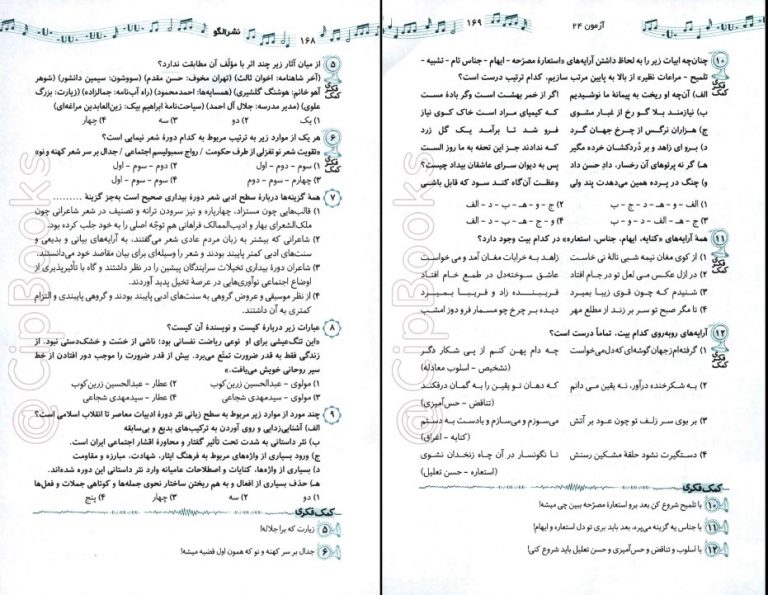 نشر الگو
۱۶۸
۵ از میان آثار زیر چند اثر با مؤلّف آن مطابقت ندارد؟
(آخر شاهنامه: اخوان ثالث) (تهران مخوف: حسن مقدم) (سووشون: سیمین دانشور) (شوهر
آهو خانم: هوشنگ گلشیری) (همسایه‌ها: احمدمحمود) (راه آب‌نامه: جمالزاده) (زیارت: بزرگ
علوی) (مدیر مدرسه: جلال آل احمد) (سیاحت‌نامۀ ابراهیم بیک: زین‌العابدین مراغه‌ای)
۱) یک ۲) دو ۳) سه ۴) چهار
۶ هر یک از موارد زیر به ترتیب مربوط به کدام دورۀ شعر نیمایی است؟
«تقویت شعر نو تغزلی از طرف حکومت / رواج سمبولیسم اجتماعی / جدال بر سر شعر کهنه و نو»
۱) سوم - دوم - اول ۲) دوم - سوم - اول
۳) چهارم - سوم - دوم ۴) سوم - سوم - اول
۷ همۀ گزینه‌ها دربارۀ سطح ادبی شعر دورۀ بیداری صحیح است به‌جز گزینۀ .........
۱) قالب‌هایی چون مستزاد، چهارپاره و نیز سرودن ترانه و تصنیف در شعر شاعرانی چون
ملک‌الشعرای بهار و ادیب‌الممالک فراهانی هم توجّه اصلی را به خود جلب کرده بود.
۲) شاعرانی که بیشتر به زبان مردم عادی شعر می‌گفتند، به آرایه‌های بیانی و بدیعی و
سنت‌های ادبی کمتر پایبند بودند و شعر را وسیله‌ای برای بیان مقاصد خود می‌دانستند.
۳) شاعران دورۀ بیداری تخیلات سرایندگان پیشین را در نظر داشتند و گاه با تأثیرپذیری از
اوضاع اجتماعی نوآوری‌هایی در عرصۀ تخیل پدید آوردند.
۴) از نظر موسیقی و عروض گروهی به سنت‌های ادبی پایبند بودند و گروهی پایبندی و التزام
کمتری به آن داشتند.
۸ عبارات زیر دربارۀ کیست و نویسندۀ آن کیست؟
«این تنگ‌عیشی برای او نوعی ریاضت نفسانی بود؛ ناشی از خشت و خشک‌دستی نبود. از
زندگی فقط به قدر ضرورت تمتّع می‌برد. بیش از قدر ضرورت را موجب دور افتادن از خط
سیر روحانی خویش می‌یافت.»
۱) مولوی - عبدالحسین زرین‌کوب ۲) عطار - عبدالحسین زرین‌کوب
۳) مولوی - سیدمهدی شجاعی ۴) عطار - سیدمهدی شجاعی
۹ چند مورد از موارد زیر مربوط به سطح زبانی نثر دورۀ ادبیات معاصر تا انقلاب اسلامی است؟
الف) آشنایی‌زدایی و روی آوردن به ترکیب‌های بدیع و بی‌سابقه
ب) نثر داستانی به شدت تحت تأثیر گفتار و محاورۀ اقشار اجتماعی ایران است.
ج) ورود بسیاری از واژه‌های مربوط به فرهنگ ایثار، شهادت، مبارزه و مقاومت
د) بسیاری از واژه‌ها، کنایات و اصطلاحات عامیانه وارد نثر داستانی این دوره شده‌اند.
هـ) حذف بسیاری از افعال و به هم ریختن ساختار نحوی جمله‌ها و کوتاهی جملات و فعل‌ها
۱) دو ۲) سه ۳) چهار ۴) پنج
کمک فکری
۵ زیارت که برا جلاله!
۶ جدال بر سر کهنه و نو که همون اول قضیه میشه!
آزمون ۲۴
۱۶۹
۱۰ چنان‌چه ابیات زیر را به لحاظ داشتن آرایه‌های «استعارۀ مصرّحه - ایهام - جناس تام - تشبیه -
تلمیح - مراعات نظیر» از بالا به پایین مرتب سازیم، کدام ترتیب درست است؟
کمک فکری
الف) آن‌چه او ریخت به پیمانۀ ما نوشیدیم اگر از خمر بهشت است وگر بادۀ مست
ب) نیازمند بلا گو رخ از غبار مشوی که کیمیای مراد است خاک کوی نیاز
ج) هزاران نرگس از چرخ جهان گرد فرو شد تا برآمد یک گل زرد
د) برو ای زاهد و بر دُردکشان خرده مگیر که ندادند جز این تحفه به ما روز الست
هـ) گر به پرتوهای آن رخسار، دادِ حسن داد پس به دیوان سرای عاشقان بیداد چیست؟
و) چنگ در پرده همین می‌دهدت پند ولی وعظت آن‌گاه کند سود که قابل باشی
۱) الف - و - هـ - د - ج - ب ۲) و - ج - هـ - ب - د - الف
۳) ج - هـ - الف - د - و - ب ۴) ج - و - هـ - ب - د - الف
۱۱ همۀ آرایه‌های «کنایه، ایهام، جناس، استعاره» در کدام بیت وجود دارد؟
کمک فکری
۱) از کوی مغان نیمه شبی نالۀ نی خاست زاهد به خرابات مغان آمد و می‌خواست
۲) در ازل عکس می لعل تو در جام افتاد عاشق سوخته‌دل در طمع خام افتاد
۳) شنیدم که چون قوی زیبا بمیرد فریبنده زاد و فریبا بمیرد
۴) تا مگر صبح تو سر بر زند از مطلع مهر دیده بر چرخ چو مسمار فرو دوز امشب
۱۲ آرایه‌های روبه‌روی کدام بیت، تماماً درست است؟
کمک فکری
۱) گرفته‌ام ز جهان گوشه‌ای که دل می‌خواست چه دام پهن کنم از پی شکار دگر
(تشخیص - اسلوب معادله)
۲) به شکرخنده درآور، نه یقین می دانم که دهان تو یقین را به گمان درفکند
(تناقض - حس‌آمیزی)
۳) بر بوی سر زلف تو چون عود بر آتش می‌سوزم و می‌سازم و بادست به دستم
(کنایه - اغراق)
۴) دستگیرت نشود حلقۀ مشکین رسنش تا نگونسار در آن چاه زنخدان نشوی
(استعاره - حسن تعلیل)
کمک فکری
۱۰ با تلمیح شروع کن بعد برو استعارۀ مصرّحه ببین چی میشه!
۱۱ با جناس یه گزینه می‌پره، بعد باید بری تو دل استعاره و ایهام!
۱۲ با اسلوب و تناقض و حس‌آمیزی و حسن تعلیل باید شروع کنی!
@CipBooks
@CipBooks